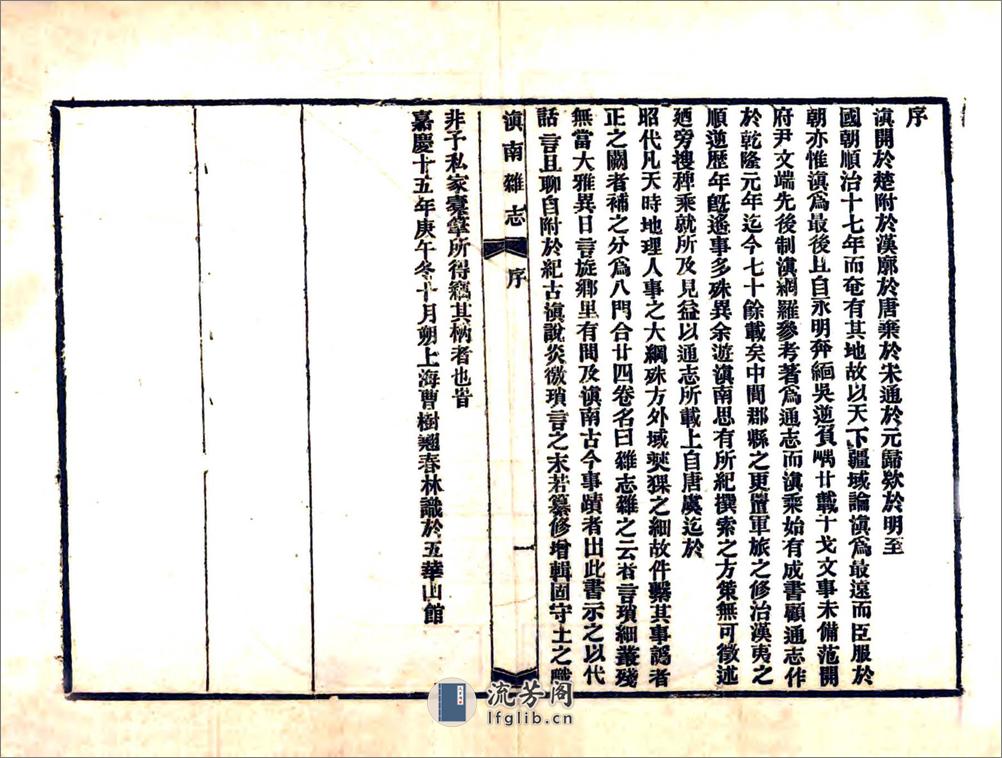 序
滇開於楚附於漢廓於唐棄於宋通於元歸欵於明至
國朝順治十七年而奄有其地故以天下疆域論滇爲最遠而臣服於
朝亦惟滇爲最後且自永明奔緬吳逆負嵎廿載干戈文事未備范開
府尹文端先後制滇網羅參考著爲通志而滇乘始有成書顧通志作
於乾隆元年迄今七十餘載矣中間郡縣之更置軍旅之修治漢夷之
順逆歷年旣遙事多殊異余遊滇南思有所紀撰索之方策無可徵述
廼旁搜稗乘就所及見益以通志所載上自唐虞迄於
昭代凡天時地理人事之大綱殊方外域爨猓之細故件繫其事譌者
正之闕者補之分爲八門合廿四卷名曰雜志雜之云者言瑣細叢殘
無當大雅異日言旋鄉里有問及滇南古今事蹟者出此書示之以代
話言且聊自附於紀古滇說炎徼瑣言之末若纂修增輯固守土之職
滇南雜志
序
一
非予私家橐筆所得竊其柄者也旹
嘉慶十五年庚午冬十月朔上海曹樹翹春林識於五華山館
流芳阁
lfglib.cn